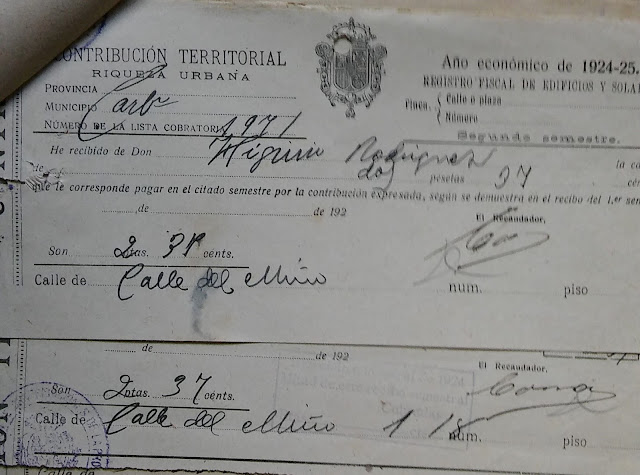 CONTRIBUCIÓN TERRITORIAL
RIQUEZA URBANA
PROVINCIA
MUNICIPIO
NÚMERO DE LA LISTA COBRATORIA 1,971
Año económico de 1924-25.
REGISTRO FISCAL DE EDIFICIOS Y SOLA
Finca. Calle o plaza
Número
Segundo semestre.
He recibido de Don Higinio Rodriguez la ca
de dos pesetas 37 cén
que le corresponde pagar en el citado semestre por la contribución expresada, según se demuestra en el recibo del 1.er sem
, de de 192
El Recaudador,
Son 2 ptas. 37 cénts.
Calle de Calle del Miño núm. piso
de de 192
El Recaudador,
Son 2 ptas. 37 cénts.
Calle de Calle del Miño 1 18 núm. piso
Calle de